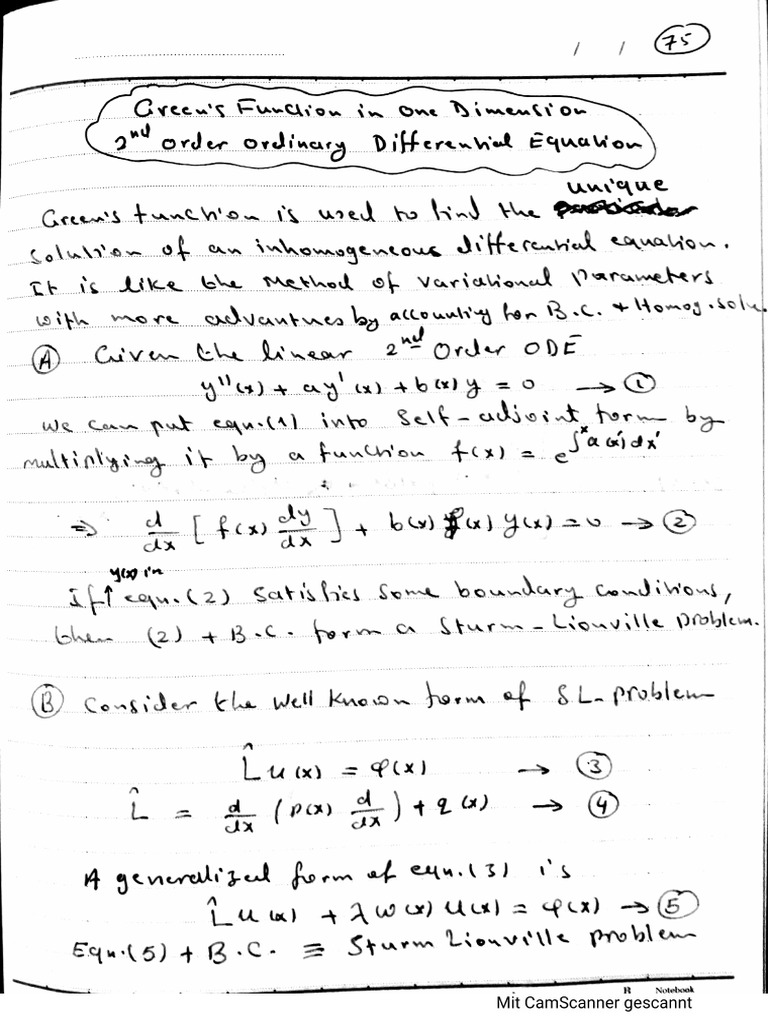 / / 75
Green's Function in One Dimension
2nd Order Ordinary Differential Equation
unique
Green's function is used to find the
Solution of an inhomogeneous differential equation.
It is like the Method of variational Parameters
with more advantues by accounting for B.C. + Homog. solu.
(A) Given the linear 2nd Order ODE
y''(x) + a y'(x) + b(x) y = 0 → (1)
We can put equn.(1) into Self-adjoint form by
multiplying it by a function f(x) = e^∫^x a(x') dx'
⇒ d/dx [ f(x) dy/dx ] + b(x) f(x) y(x) = 0 → (2)
y(x) in
If ↑ equn.(2) Satisfies some boundary conditions,
then (2) + B.C. form a Sturm-Liouville Problem.
(B) Consider the well known form of SL-problem
L̂ u(x) = φ(x) → (3)
L̂ = d/dx (p(x) d/dx) + q(x) → (4)
A generalized form of equn.(3) is
L̂ u(x) + λ w(x) u(x) = φ(x) → (5)
Equn.(5) + B.C. ≡ Sturm Liouville problem
R Notebook
Mit CamScanner gescannt